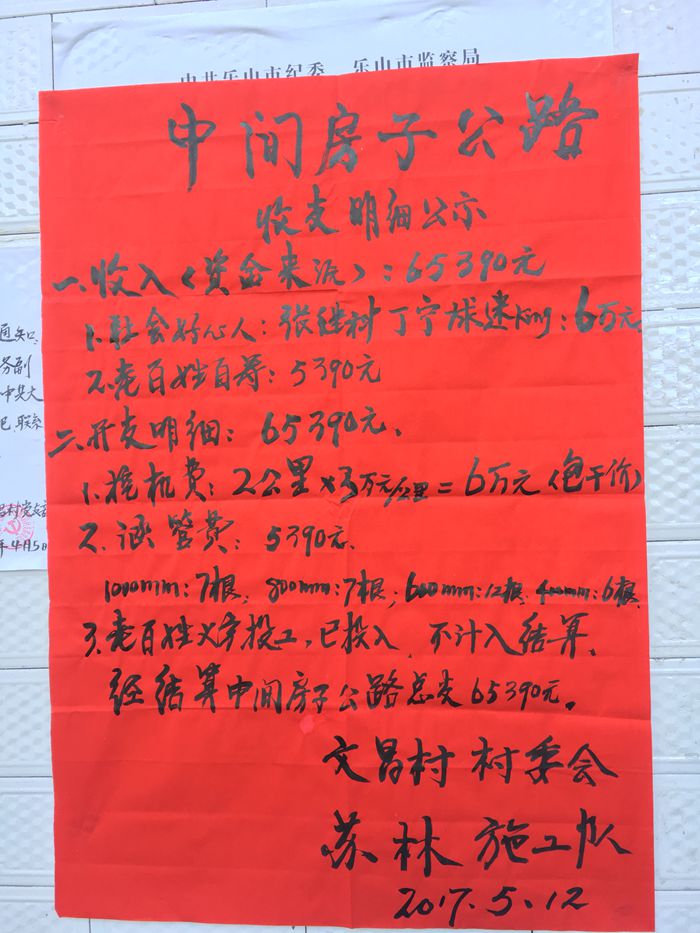 中共乐山市纪委 乐山市监察局
中间房子公路
收支明细公示
一、收入(资金来沅):65390元
1.社会好心人:张继科丁宁球迷King:6万元
2.老百姓自筹:5390元
二、开支明细:65390元、
1.挖机费:2公里×3万元/公里=6万元(包干价)
2.涵管费:5390元、
1000mm:7根,800mm:7根;600mm:12根 400mm:6根
3.老百姓义务投工,已投入,不计入结算、
经结算中间房子公路总支65390元。
文昌村村委会
苏林施工队
2017.5.12
通知
务副
中共大
联系
村党支部
年4月5日